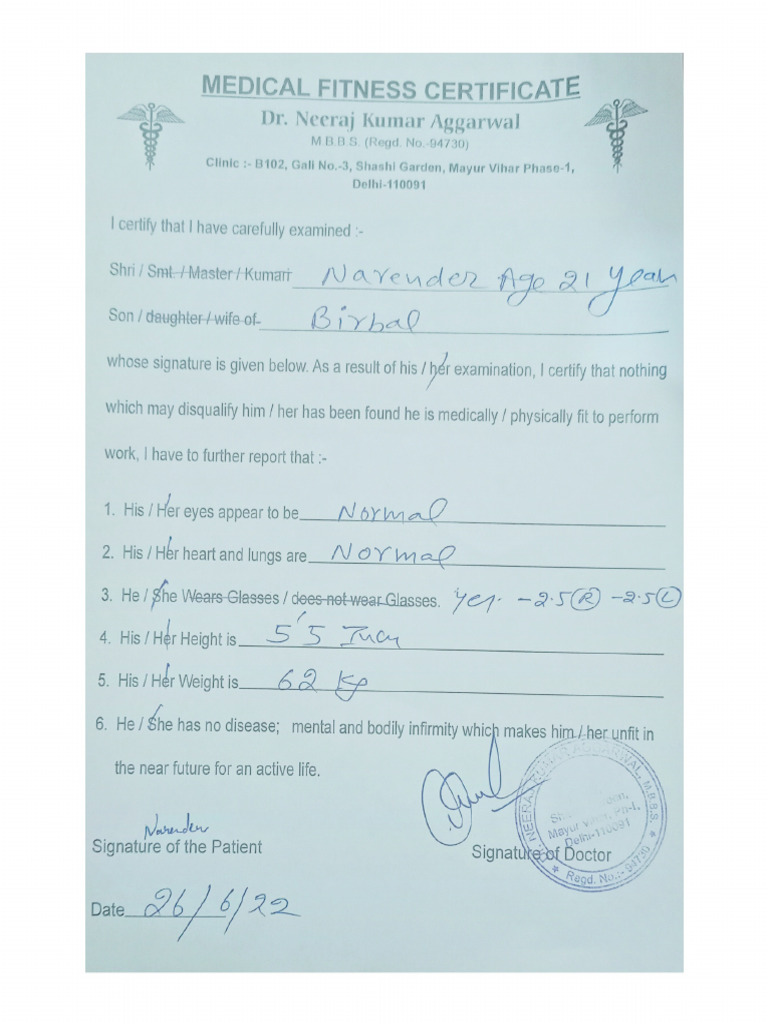 MEDICAL FITNESS CERTIFICATE
Dr. Neeraj Kumar Aggarwal
M.B.B.S. (Regd. No.-94730)
Clinic :- B102, Gali No.-3, Shashi Garden, Mayur Vihar Phase-1,
Delhi-110091
I certify that I have carefully examined :-
Shri / Smt. / Master / Kumari Narender Age 21 year
Son / daughter / wife of Birbal
whose signature is given below. As a result of his / her examination, I certify that nothing
which may disqualify him / her has been found he is medically / physically fit to perform
work, I have to further report that :-
1. His / Her eyes appear to be Normal
2. His / Her heart and lungs are Normal
3. He / She Wears Glasses / does not wear Glasses. Yes. -2.5 (R) -2.5 (L)
4. His / Her Height is 5'5 Inch
5. His / Her Weight is 62 Kg
6. He / She has no disease; mental and bodily infirmity which makes him / her unfit in
the near future for an active life.
Narender
Signature of the Patient
Signature of Doctor
DR. NEERAJ KUMAR AGGARWAL, M.B.B.S.
Mayur Vihar, Ph-I,
Delhi-110091
★ Regd. No.:- 94730 ★
Date 26/6/22